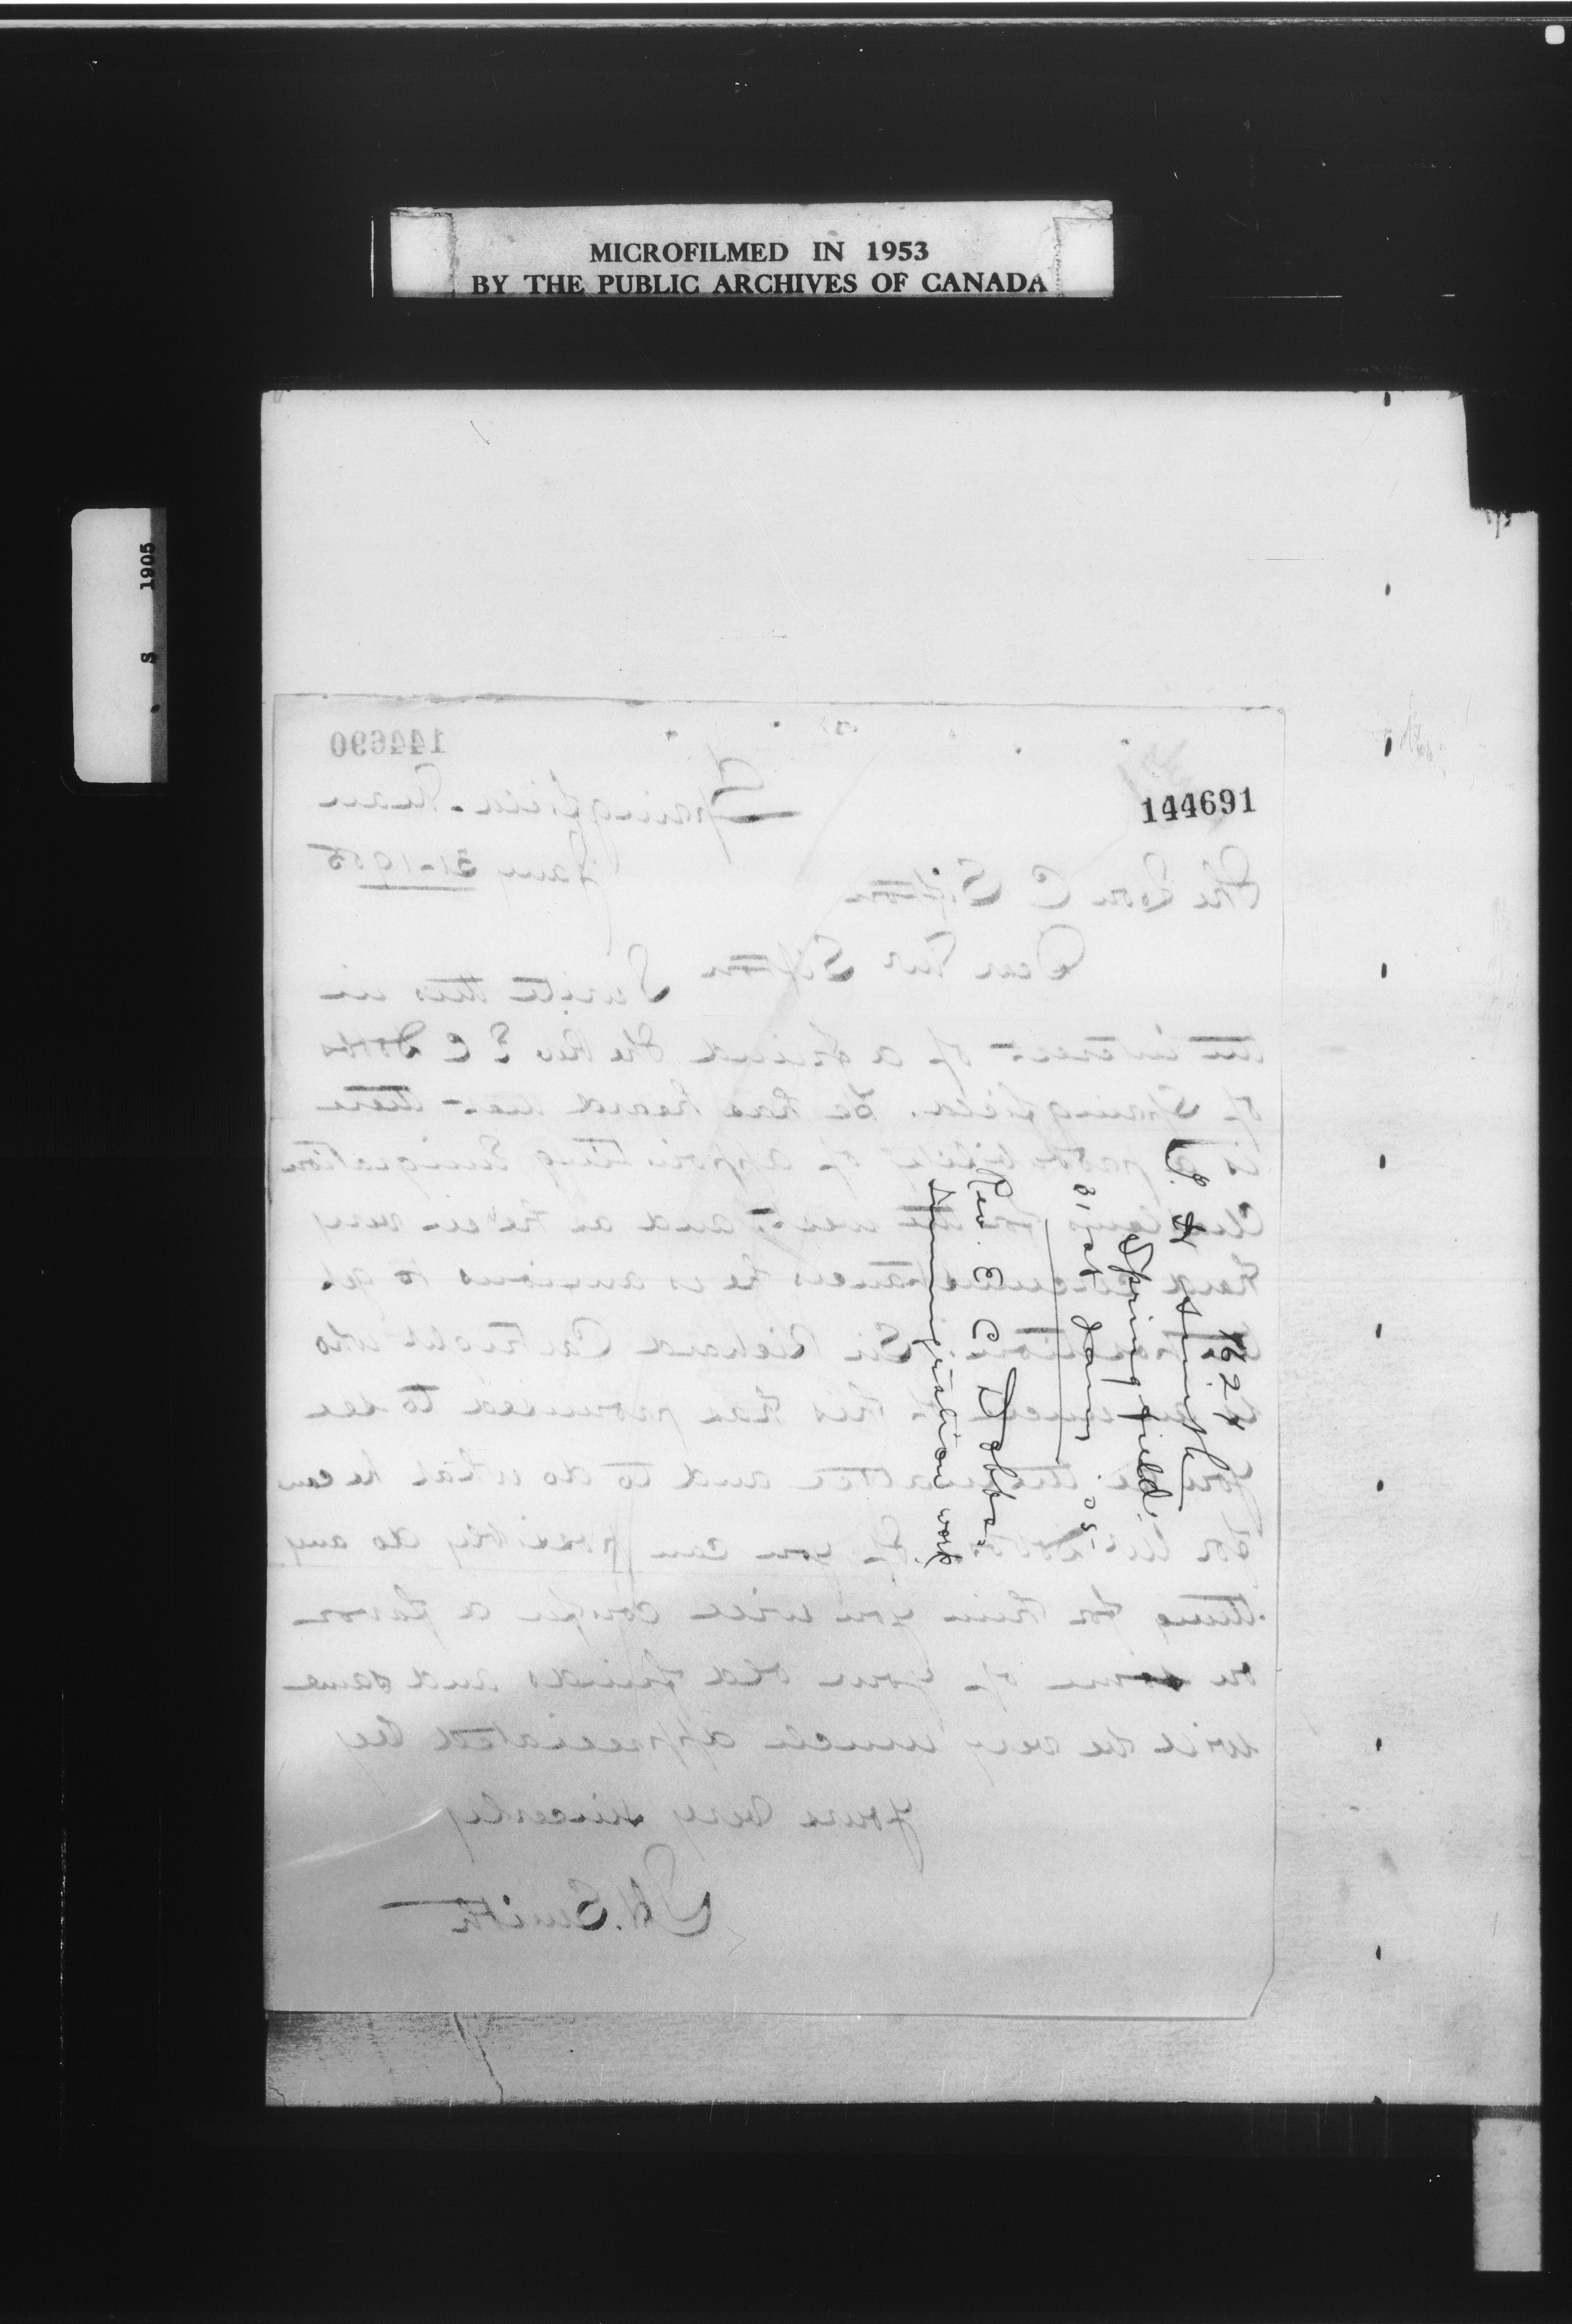 MICROFILMED IN 1953
BY THE PUBLIC ARCHIVES OF CANADA
1905
S
144690
144691
Springfield. Man
Jany 31-1905
The Hon C Sifton
Dear Mr Sifton
I write this in
the interest of a friend the Rev E C Dobbs
of Springfield. He has heard that there
is a possibility of appointing Emigration
for the west, and as he is in very
hard circumstances he is anxious to get
a position. Sir Richard Cartright who
is an uncle of his has promised to see
you in the matter and to do what he can
for Mr Dobbs. If you can possibly do any
thing for him you will confer a favor
on some of your old friends and same
will be very much appreciated by
yours very sincerely
J H. Smith
1624
J. H Smith
Springfield.
31st Jany. 05.
Rev. E C Dobbs.
Immigration work.